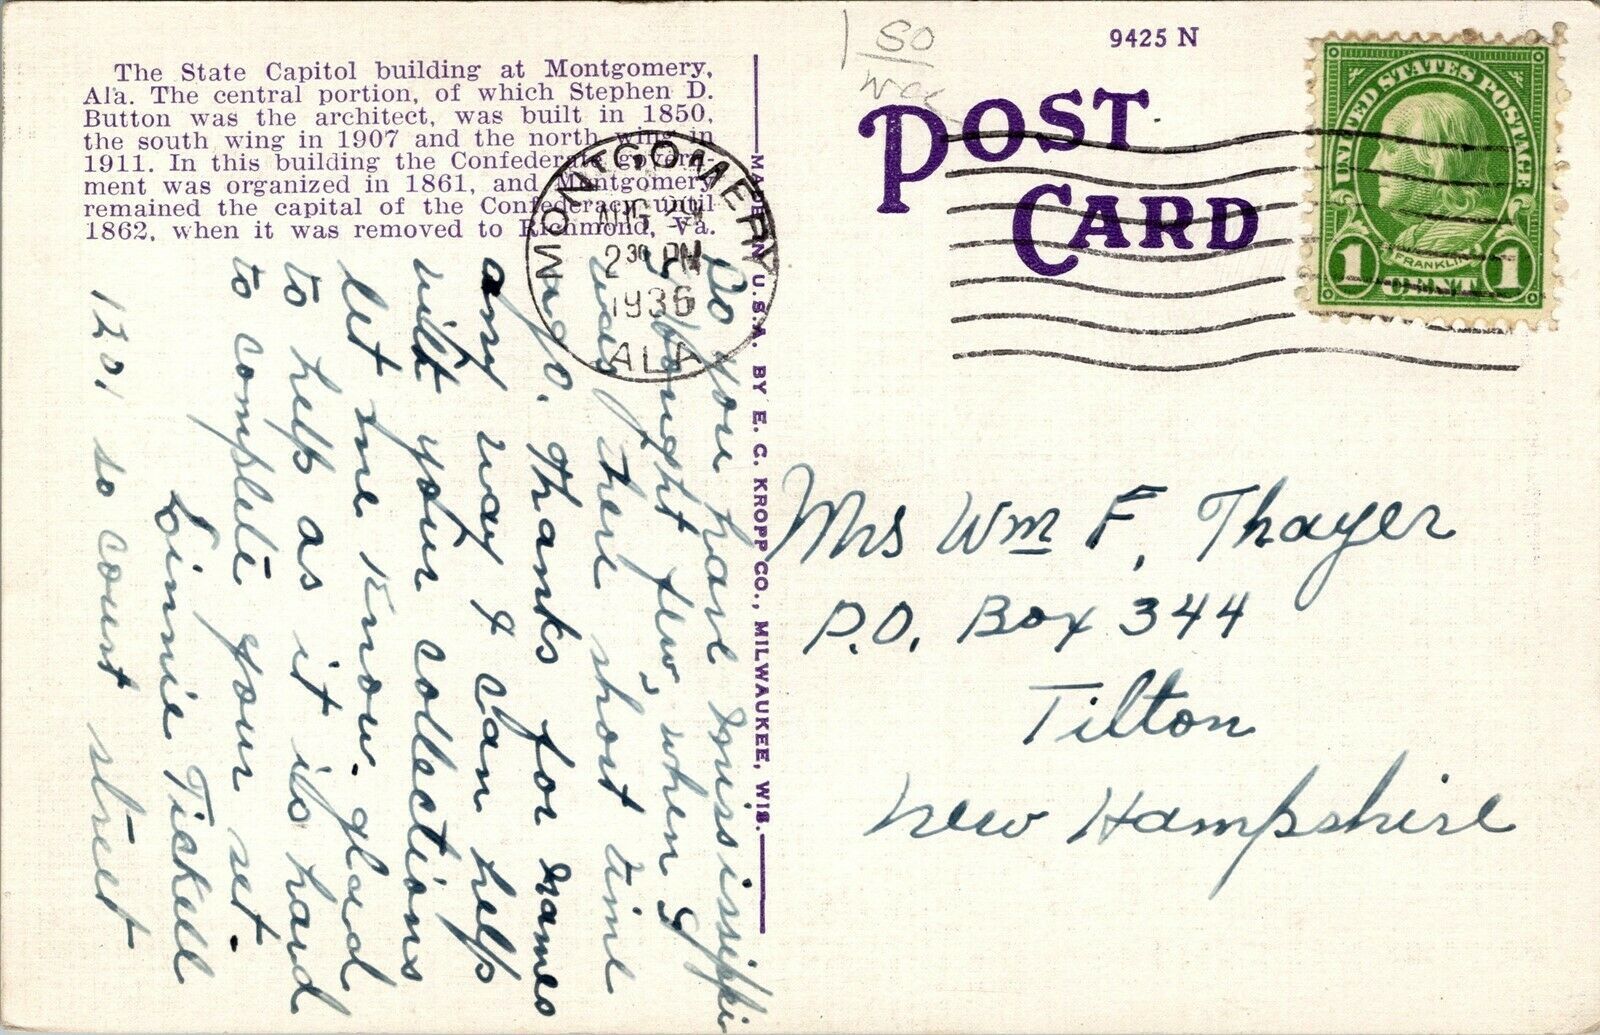 The State Capitol building at Montgomery,
Ala. The central portion, of which Stephen D.
Button was the architect, was built in 1850,
the south wing in 1907 and the north wing in
1911. In this building the Confederate govern-
ment was organized in 1861, and Montgomery
remained the capital of the Confederacy until
1862, when it was removed to Richmond, Va.
MONTGOMERY
AUG
2 30 PM
1936
ALA
MADE IN U.S.A. BY E. C. KROPP CO., MILWAUKEE, WIS.
9425 N
POST
CARD
UNITED STATES POSTAGE
FRANKLIN
1 CENT 1
Do you have mississippi
I bought few, when I
was there short time
ago. Thanks for names
any way I can help
with your collections
let me know. glad
to help as it is hard
to complete your set.
Linnie Tickell
1201 so court street
Mrs Wm F. Thayer
P.O. Box 344
Tilton
New Hampshire